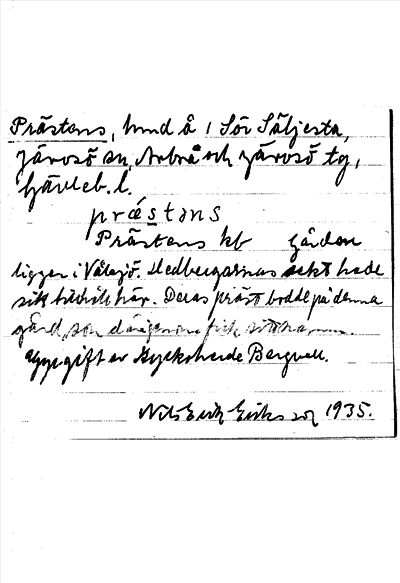 Prästens, hmd å 1 Sör Säljesta,
Järvsö sn, Arbrå och Järvsö tg,
Gävleb. l.
præstəns
Prästens kb Gården
ligger i Vålsjö. Hedbergarnas sekt hade
sitt tillhåll här. Deras präst bodde på denna
gård, som därigenom fick sitt namn.
Uppgift av Kyrkoherde Bergvall.
Nils Erik Eriksson 1935.